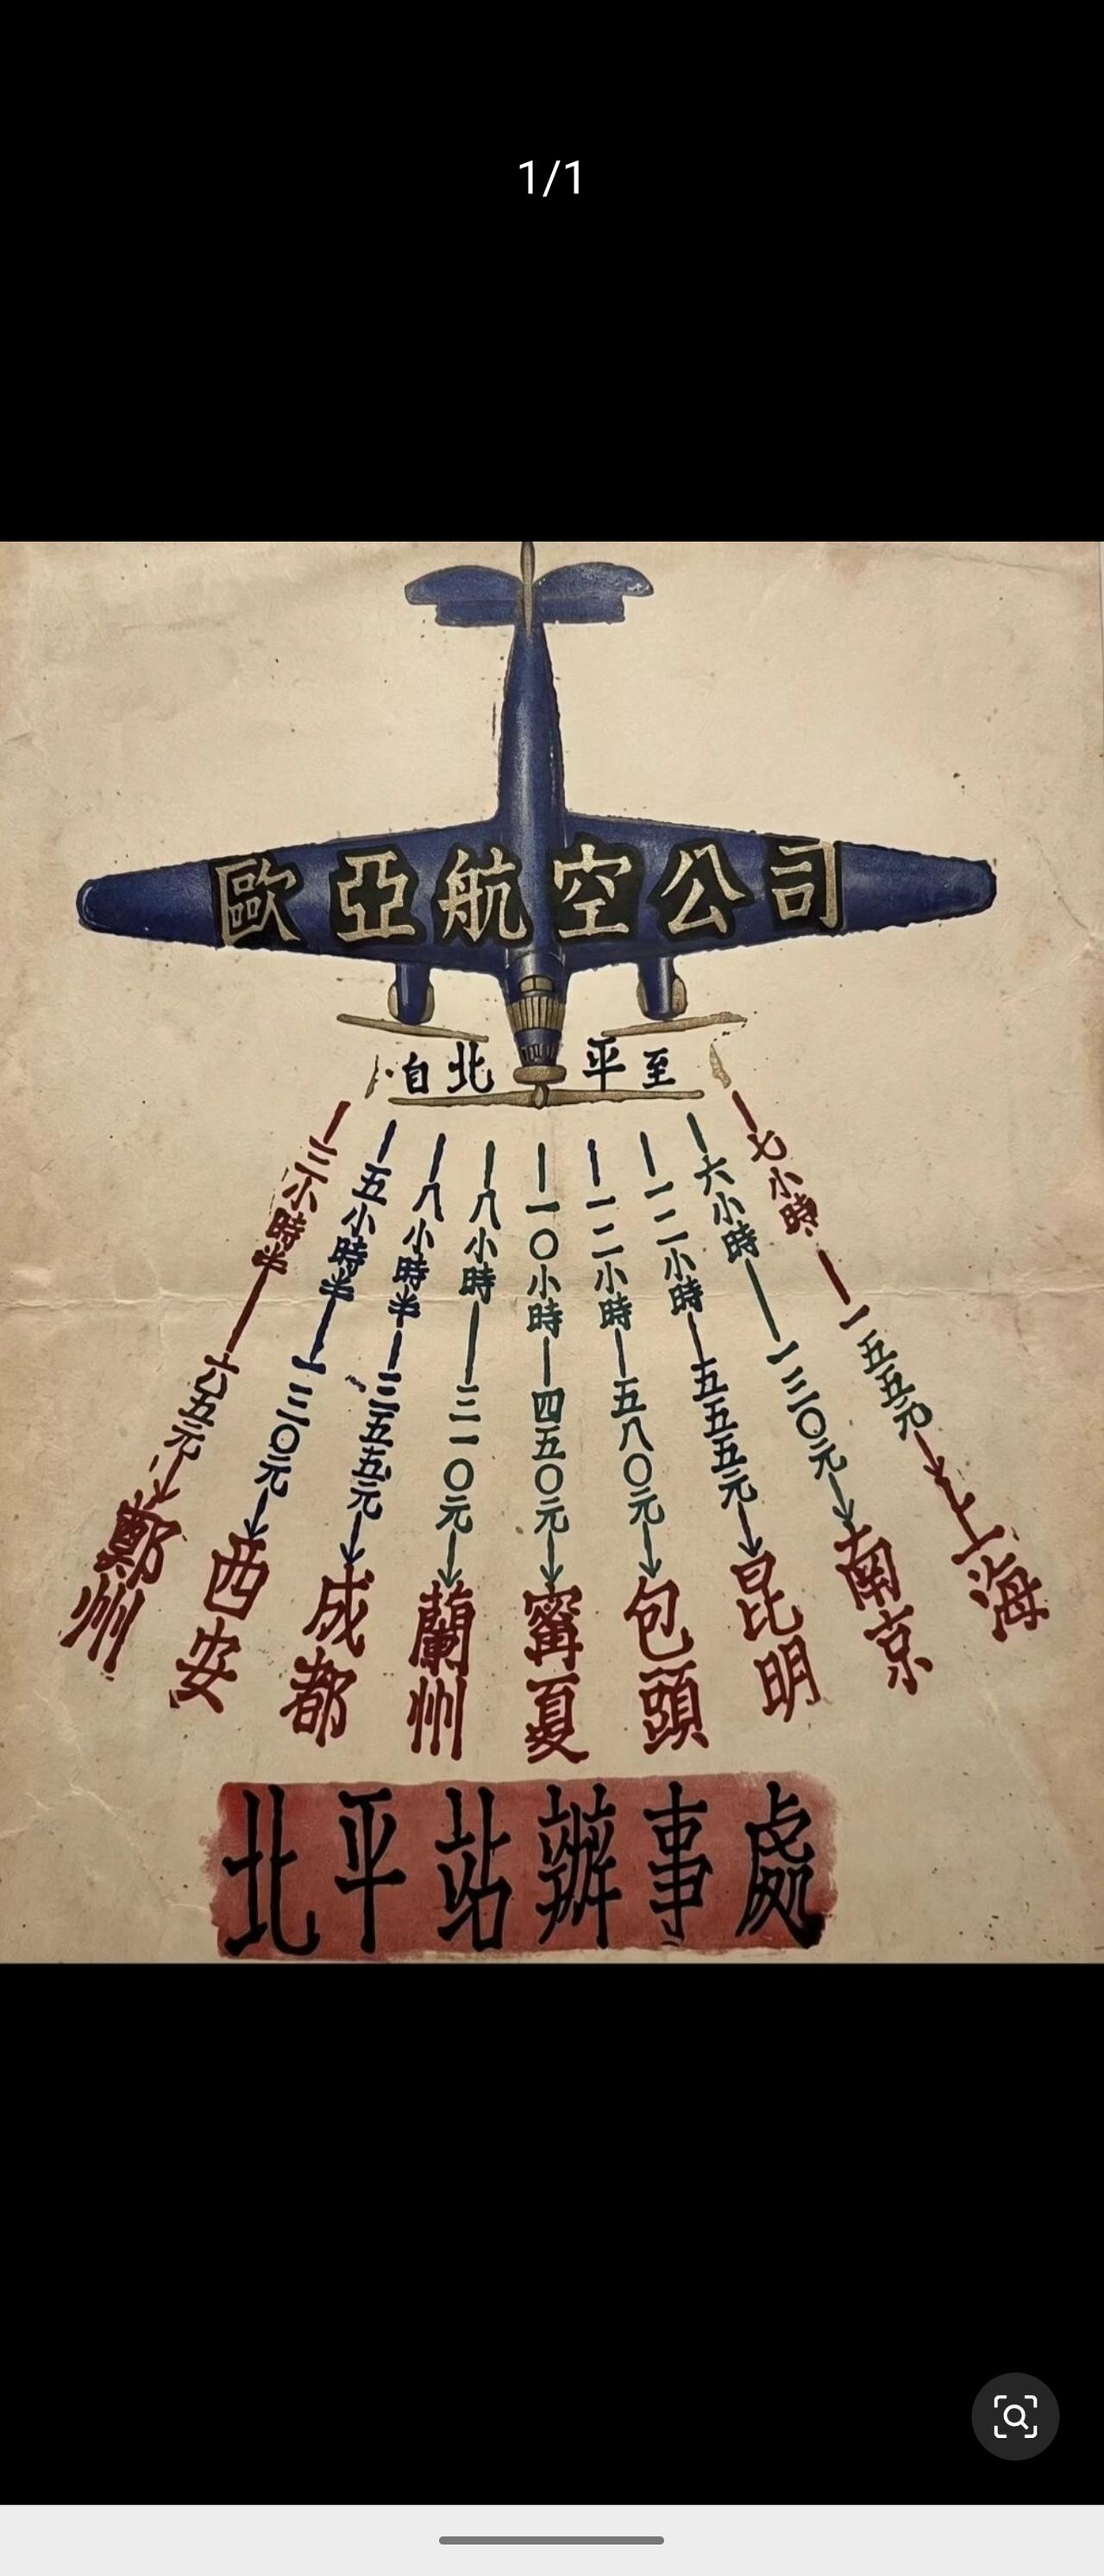 1/1
歐亞航空公司
自北平至
三小時半 六五元 鄭州
五小時半 一三〇元 西安
八小時半 三五五元 成都
八小時 三一〇元 蘭州
一〇小時 四五〇元 寧夏
一二小時 五八〇元 包頭
一二小時 五五五元 昆明
六小時 一三〇元 南京
七小時 一五五元 上海
北平站辦事處